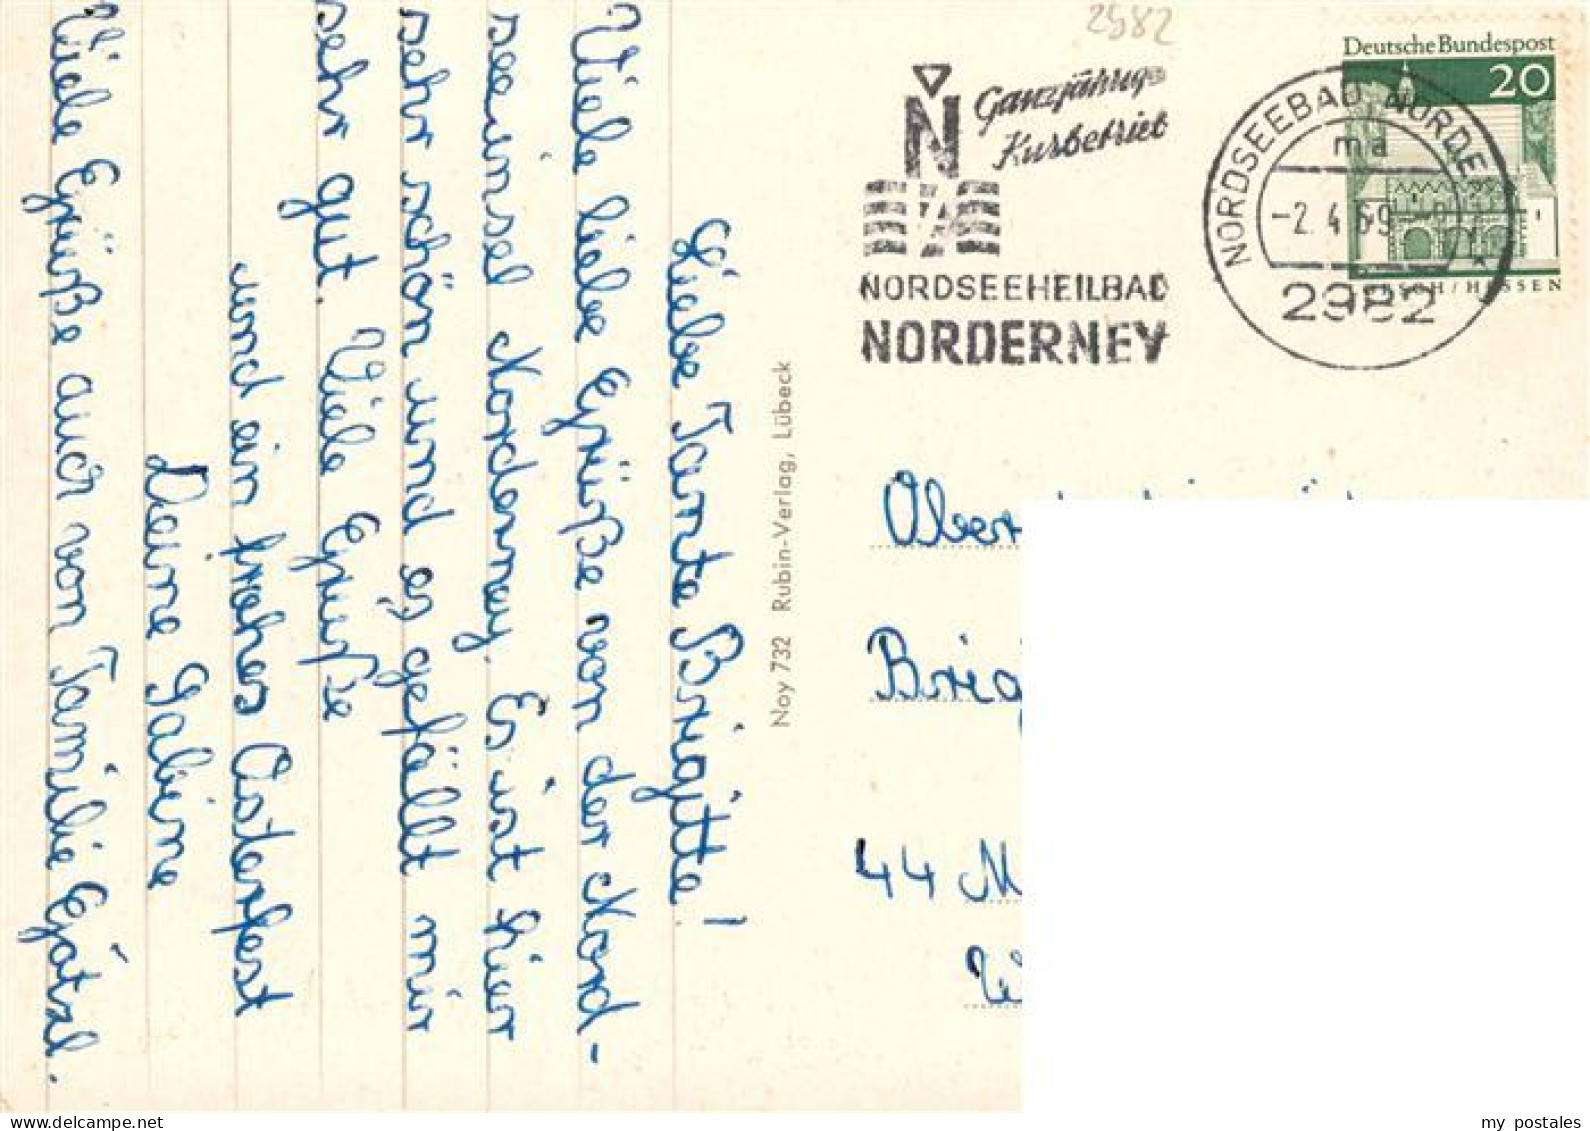 Liebe Tante Brigitte!
Viele liebe Grüße von der Nord-
seeinsel Norderney. Es ist hier
sehr schön und es gefällt mir
sehr gut. Viele Grüße
und ein frohes Osterfest
Deine Sabine
Viele Grüße auch von Familie Götzl.
Noy 732 Rubin-Verlag, Lübeck
2982
N
Ganzjähriger
Kurbetrieb
NORDSEEHEILBAD
NORDERNEY
NORDSEEBAD NORDE
ma
-2. 4. 69
2982
Deutsche Bundespost
20
RSCH/HESSEN
Ober
Brig
44 M
my postales